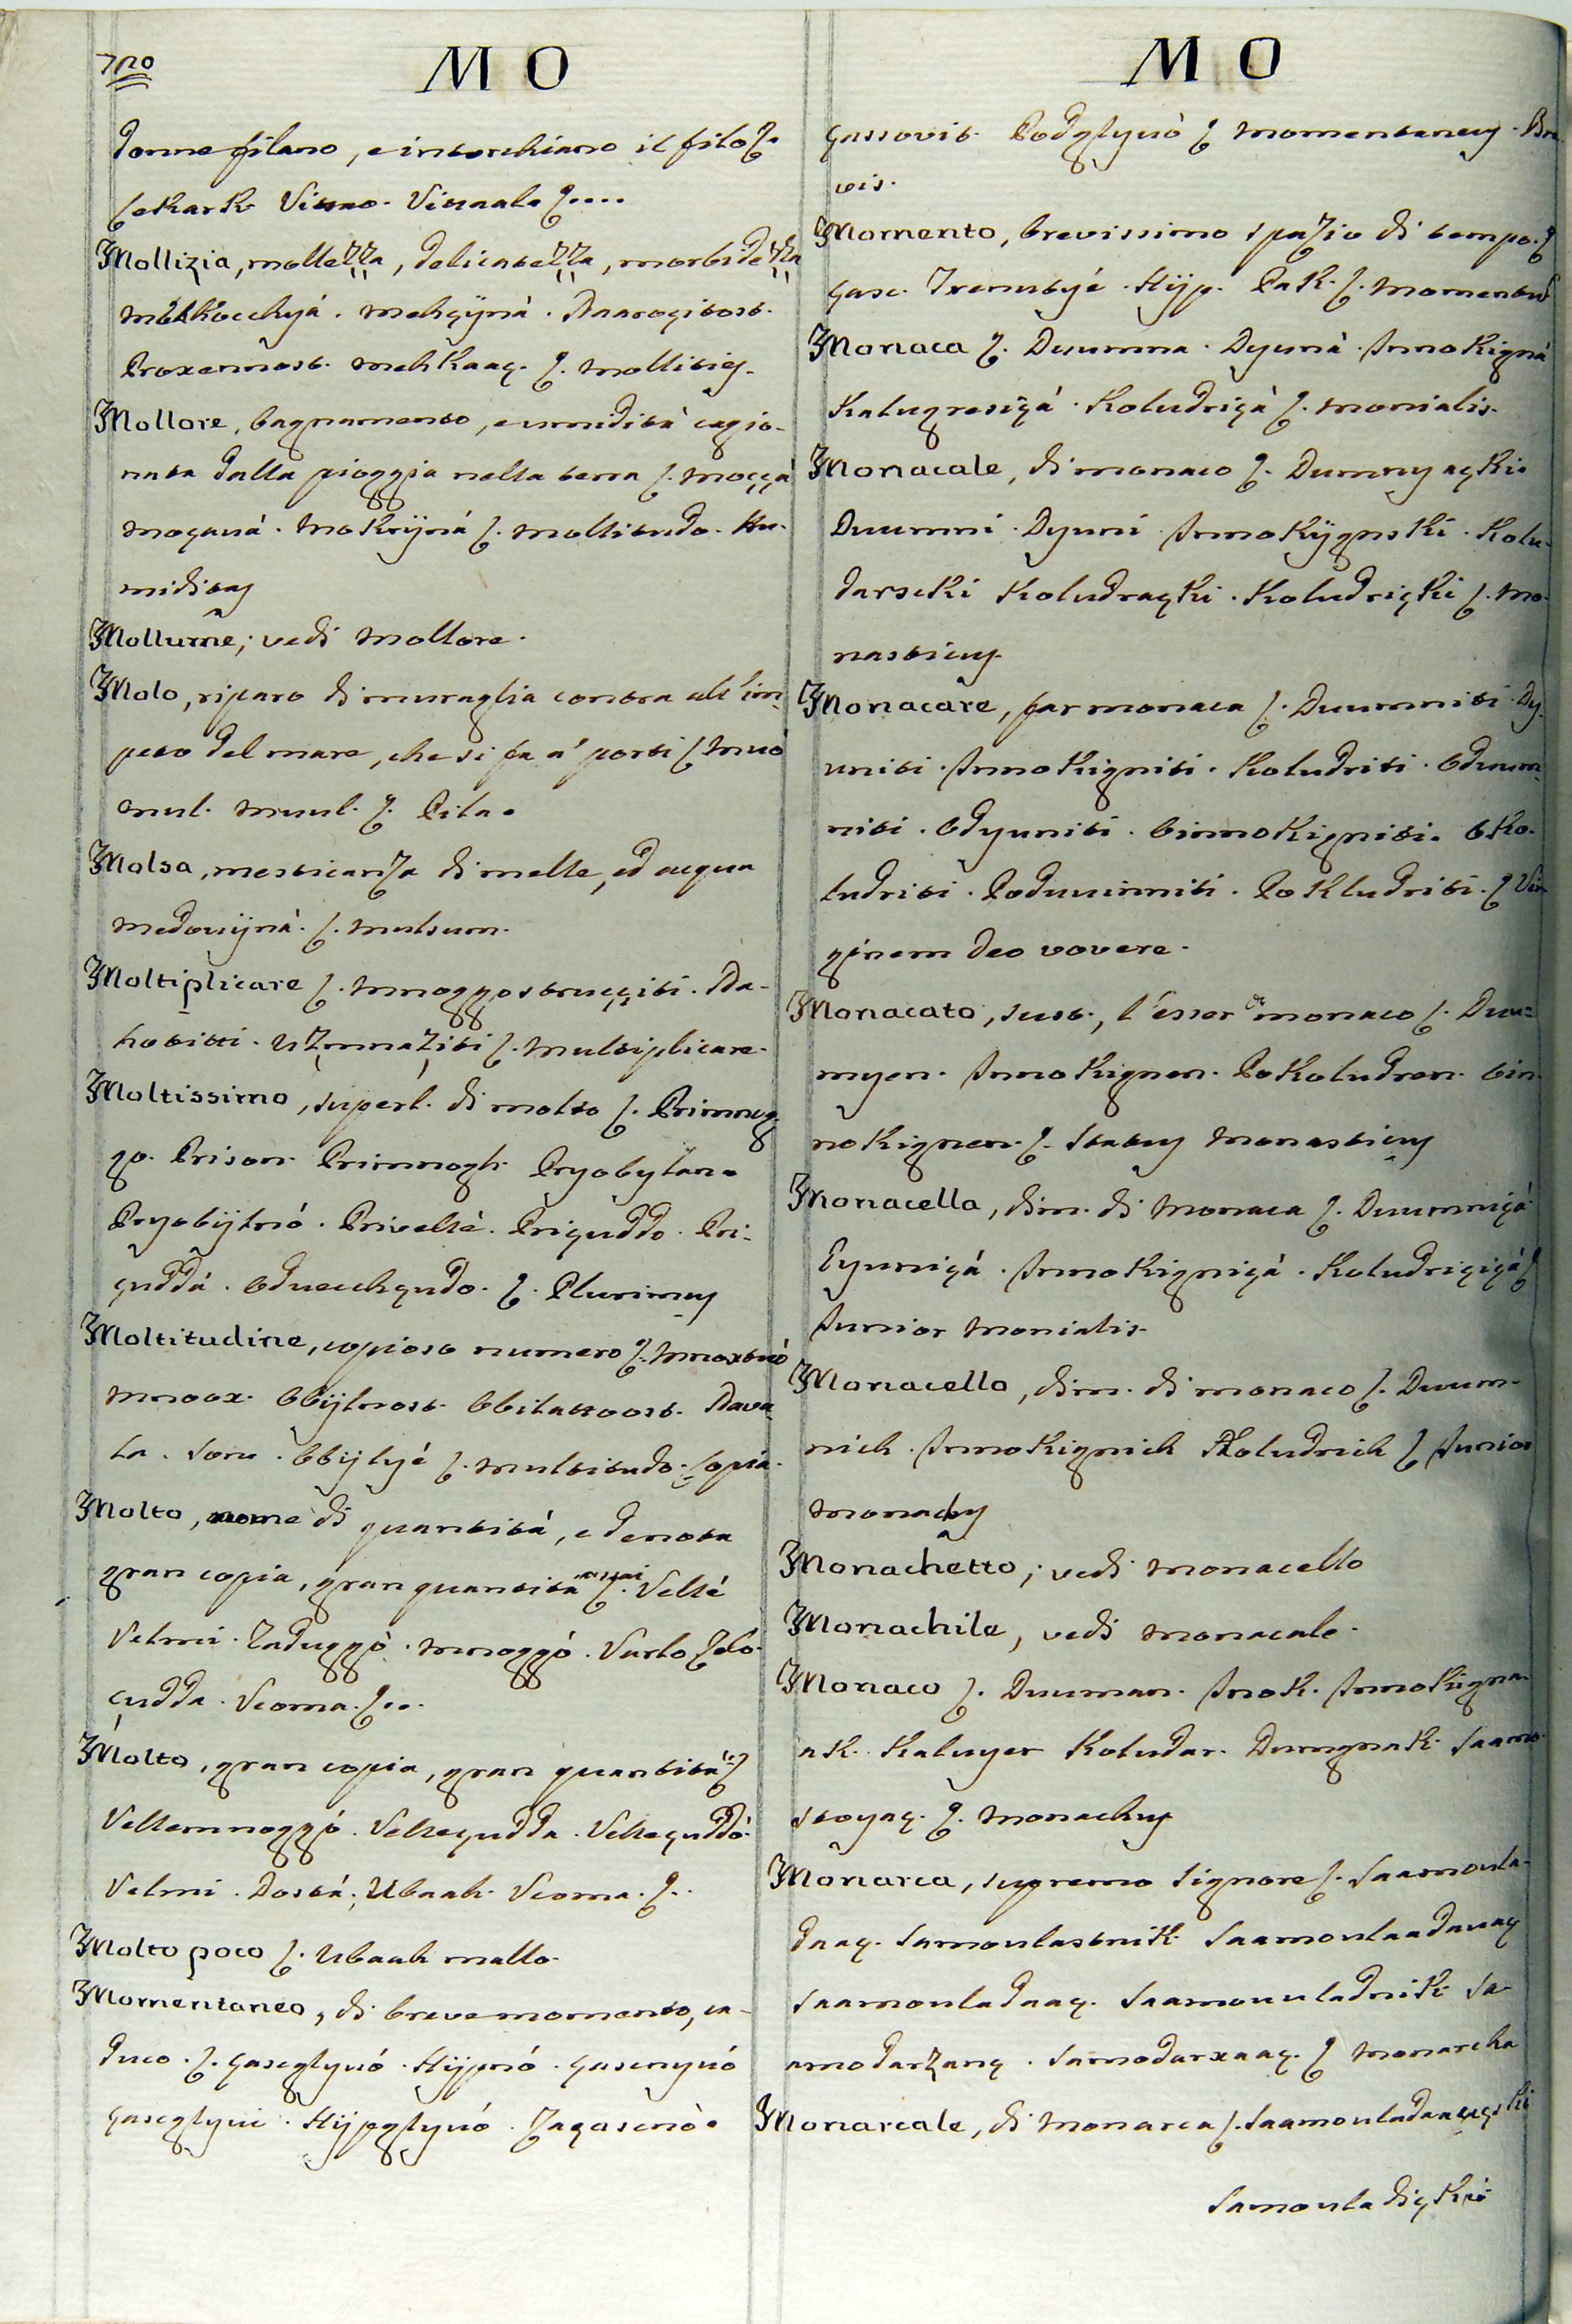 720
M O
donne filano, e intorchiano il filo ʃ.
Cekark Vittao. Vittaal. ʃ....
Mollizia, mollezza, delicatezza, morbidezza
mekkocchyá. mehçÿná. Raaroçitost.
Proxennost. mehkaaç. ʃ. mollities.
Mollore, bagnamento, e umidità cagio-
nata dalla pioggia nella terra ʃ. moççá
moçauá. mokrÿná ʃ. mollitudo. Hu-
miditas
Mollume; vedi Mollore.
Molo, riparo di muraglia contra all'im-
peto del mare, che si fa a' porti ʃ muó
mul. muul. ʃ. Pila.
Molsa, mesticanza di melle, ed acqua
medouÿná. ʃ. mulsum.
Moltiplicare ʃ. mnoggostrucçiti. Pla-
hotitti. Uzmnaziti ʃ. multiplicare.
Moltissimo, superl. di molto ʃ. Primnog-
go. Prison. Primnogh. Pryobylan.
Pryobÿlnó. Privelle. Priçuddo. Pri-
çuddá. Oduechçudo. ʃ. Plurimus
Moltitudine, copioso numero ʃ. mnoxtuó
mnoox. Obÿlnost. Obilatnost. Nava-
la. Obÿlyé ʃ. multitudo. Copia.
Molto, nome di quantità, e denota
gran copia, gran quantità assai ʃ. Vellé
Velmi. Zaduggò. mnoggó. Varlo Zelo.
çudda. Veoma. ʃ..
Molto, gran copia, gran quantità ʃ
Vellemnoggó. Velleçudda. Velleçuddó.
Velmi. Dostá; Ubaah. Veoma. ʃ..
Molto poco ʃ. Ubaah mallo.
Momentaneo, di breve momento, ca-
duco. ʃ. çasçglyuó. Hÿpnó. çasenyuó
çaseglyui. Hÿpglyuó. Zaçasenò.
M O
çassovit. Podglyuò ʃ momentaneus. Bre
vis.
Momento, brevissimo spazio di tempo. ʃ
çasc. Trenutyé. Hÿp. Pak. ʃ. Momentum
Monaca ʃ. Duumna. Dyuná. Innokigná
Kalugresiçá. Koludriçá ʃ. monialis.
Monacale, di monaco ʃ. Dumnyaçki
Duumni. Dyuni. Innokÿgnski. Kolu-
darscki Koludraçki. Koludriçki ʃ. mo-
nasticus.
Monacare, far monaca ʃ. Duumniti. Dy-
uniti. Innokigniti. Koludriti. Oduum-
niti. Odyuniti. Oinnokigniti. Oko-
ludriti. Poduumniti. Pokludriti. ʃ Vir-
ginem Deo vovere.
Monacato, sust., l'esser di monaco ʃ. Duu-
myen. Innokignen. Pokoludren. Oin-
nokignen. ʃ. Status Monasticus
Monacella, dim. di Monaca ʃ. Duumniçá
Dyuniçá. Innokigniçá. Koludriçiçá ʃ
Junior Monialis.
Monacello, dim. di monaco ʃ. Duum-
nich. Innokignich Koludrich ʃ Junior
Monachus
Monachetto; vedi Monacello
Monachile, vedi monacale.
Monaco ʃ. Duuman. Inok. Innokigna-
ak. Kaluyer Koludar. Dumgnak. Saamo-
stoyaç. ʃ. Monachus
Monarca, supremo Signore ʃ. Saamoula-
daaç. Samoulastnik. Saamoulaadauaç
Saamouladaaç. Saamouuladnik. Sa-
amodarzauç. Samodarxaaç. ʃ Monarcha
Monarcale, di Monarca ʃ. Saamouladaaçski
Samouladiçki